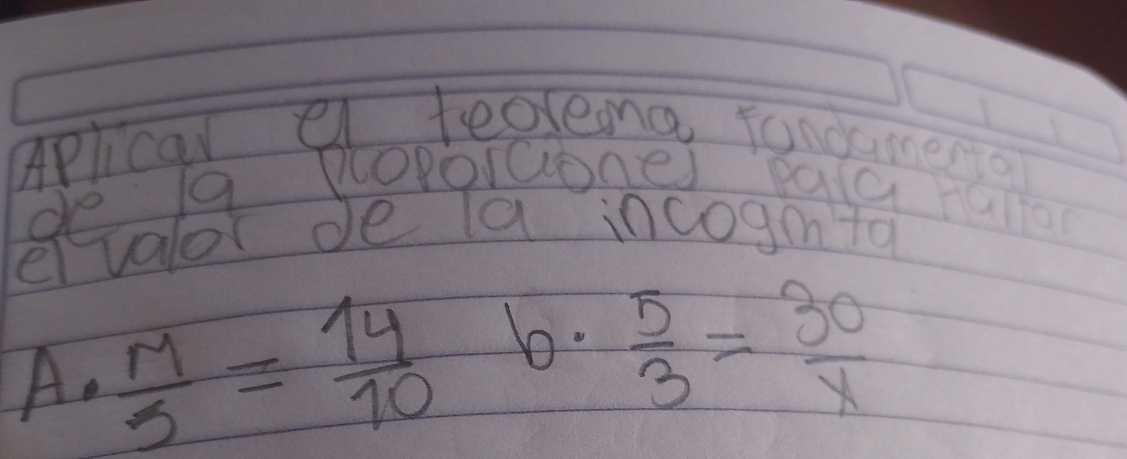 Aplical el teolema Fundamental
de la Ploporciones para Hallar
el valor de la incognita
A. M/5 = 14/10 b. 5/3 = 30/x